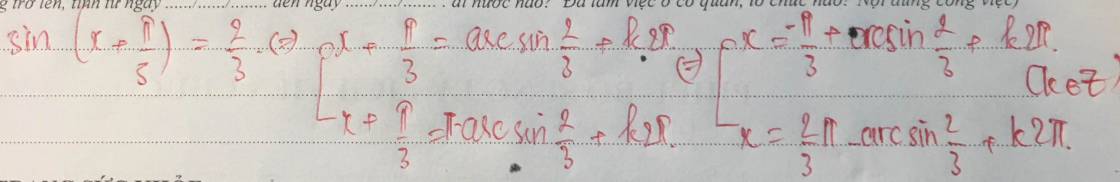 g trở lên, tính từ ngày ...../...../........ đến ngày ...../...../........ : ai nước nào? Đã làm việc ở cơ quan, tổ chức nào? Nội dung công việc)
sin (x + π/3) = 2/3 . (=) [ x + π/3 = arcsin 2/3 + k2π (=) [ x = -π/3 + arcsin 2/3 + k2π.
(k∈Z)
x + π/3 = π - arcsin 2/3 + k2π. x = 2/3 π - arcsin 2/3 + k2π.